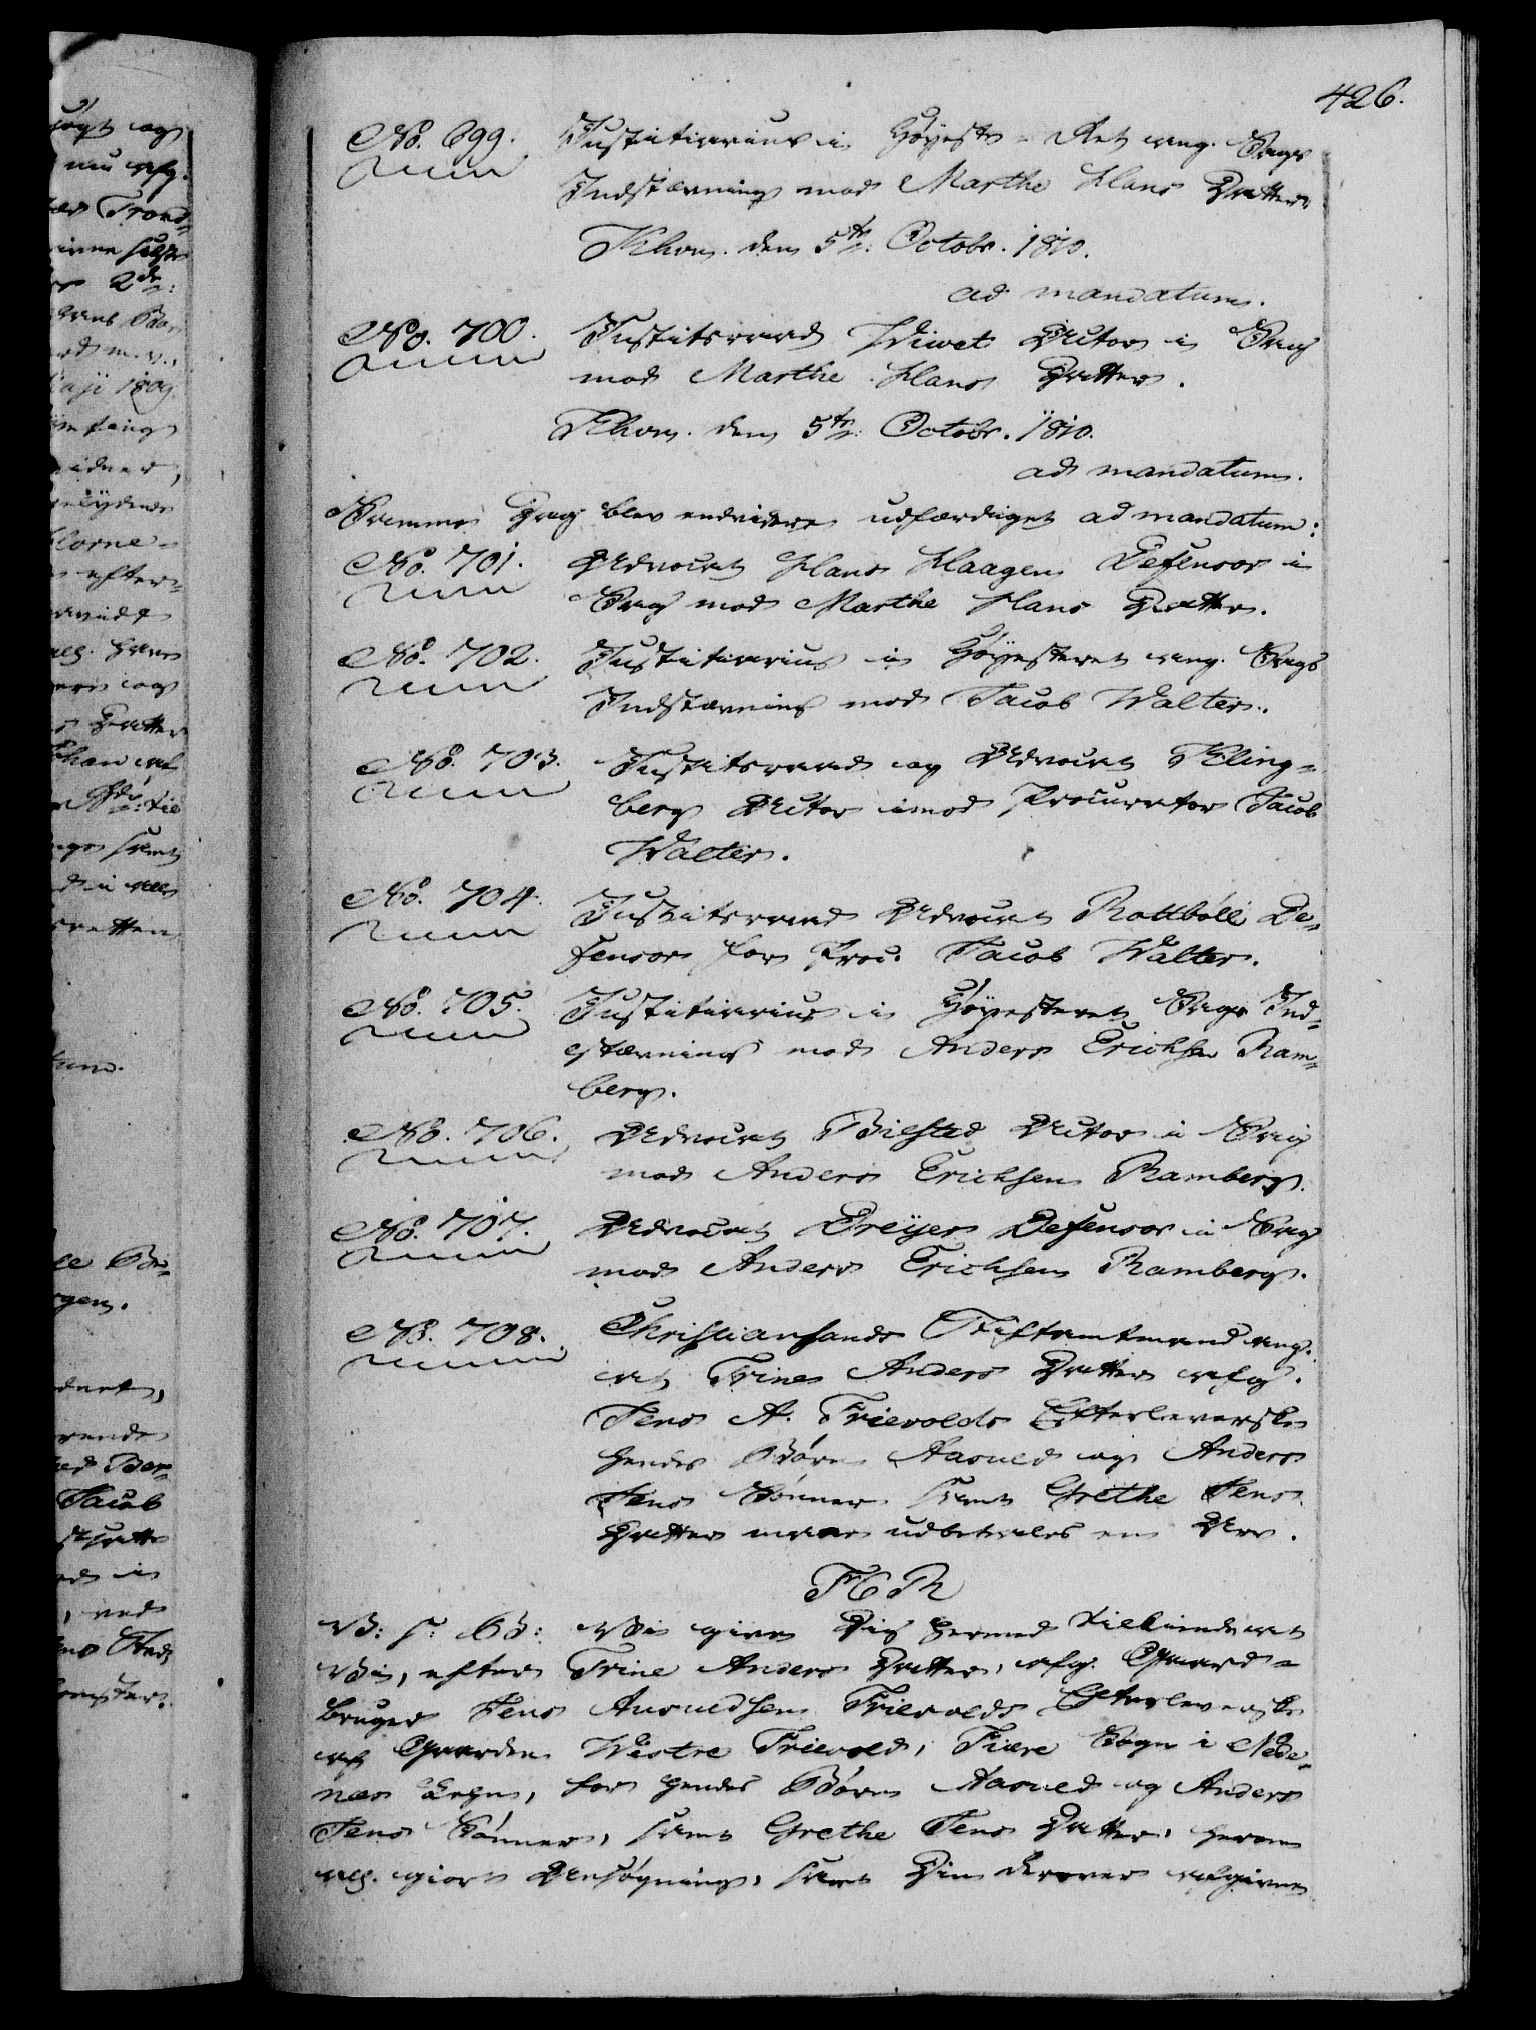 426.
No. 699. Justitiarius i Høyeste-Ret ang. Sags
Indstævning mod Marthe Hans Datter.
Khvn. den 5te Octobr. 1810.
ad mandatum.
No. 700. Justitsraad Wiwet Actor i Sag
mod Marthe Hans Datter.
Khvn. den 5te Octobr. 1810.
ad mandatum.
Samme Dag blev endvidere udfærdiget ad mandatum:
No. 701. Advocat Hans Haagen Defensor i
Sag mod Marthe Hans Datter.
No. 702. Justitiarius i Høyesteret ang. Sags
Indstævning mod Jacob Walter.
No. 703. Justitsraad og Advocat Kling-
berg Actor imod Procurator Jacob
Walter.
No. 704. Justitsraad Advocat Rottbøll De-
fensor for Proc. Jacob Walter.
No. 705. Justitiarius i Høyesteret Sags Ind-
stævning mod Anders Erichsen Ram-
berg.
No. 706. Advocat Bilsted Actor i Sag
mod Anders Erichsen Ramberg.
No. 707. Advocat Dreÿer Defensor i Sag
mod Anders Erichsen Ramberg.
No. 708. Christiansands Stiftamtmand ang.
at Trine Anders Datter afg.
Jens A. Trievolds Efterleverske
hendes Børn Aasuld og Anders
Jens Sønner samt Grethe Jens
Datter maae udbetales en Arv.
F 6 R
V: s: G: Vi give Dig hermed tilkiende at
Vi, efter Trine Anders Datter, afg. Gaard-
bruger Jens Aasuldsen Trievolds Efterleverske
af Gaarden Westre Trievold, Fiære Sogn i Nede-
næs Lehn, for hendes Børn Aasuld og Anders
Jens Sønner, samt Grethe Jens Datter, herom
all. giort Ansøgning, samt Din derover afgivne